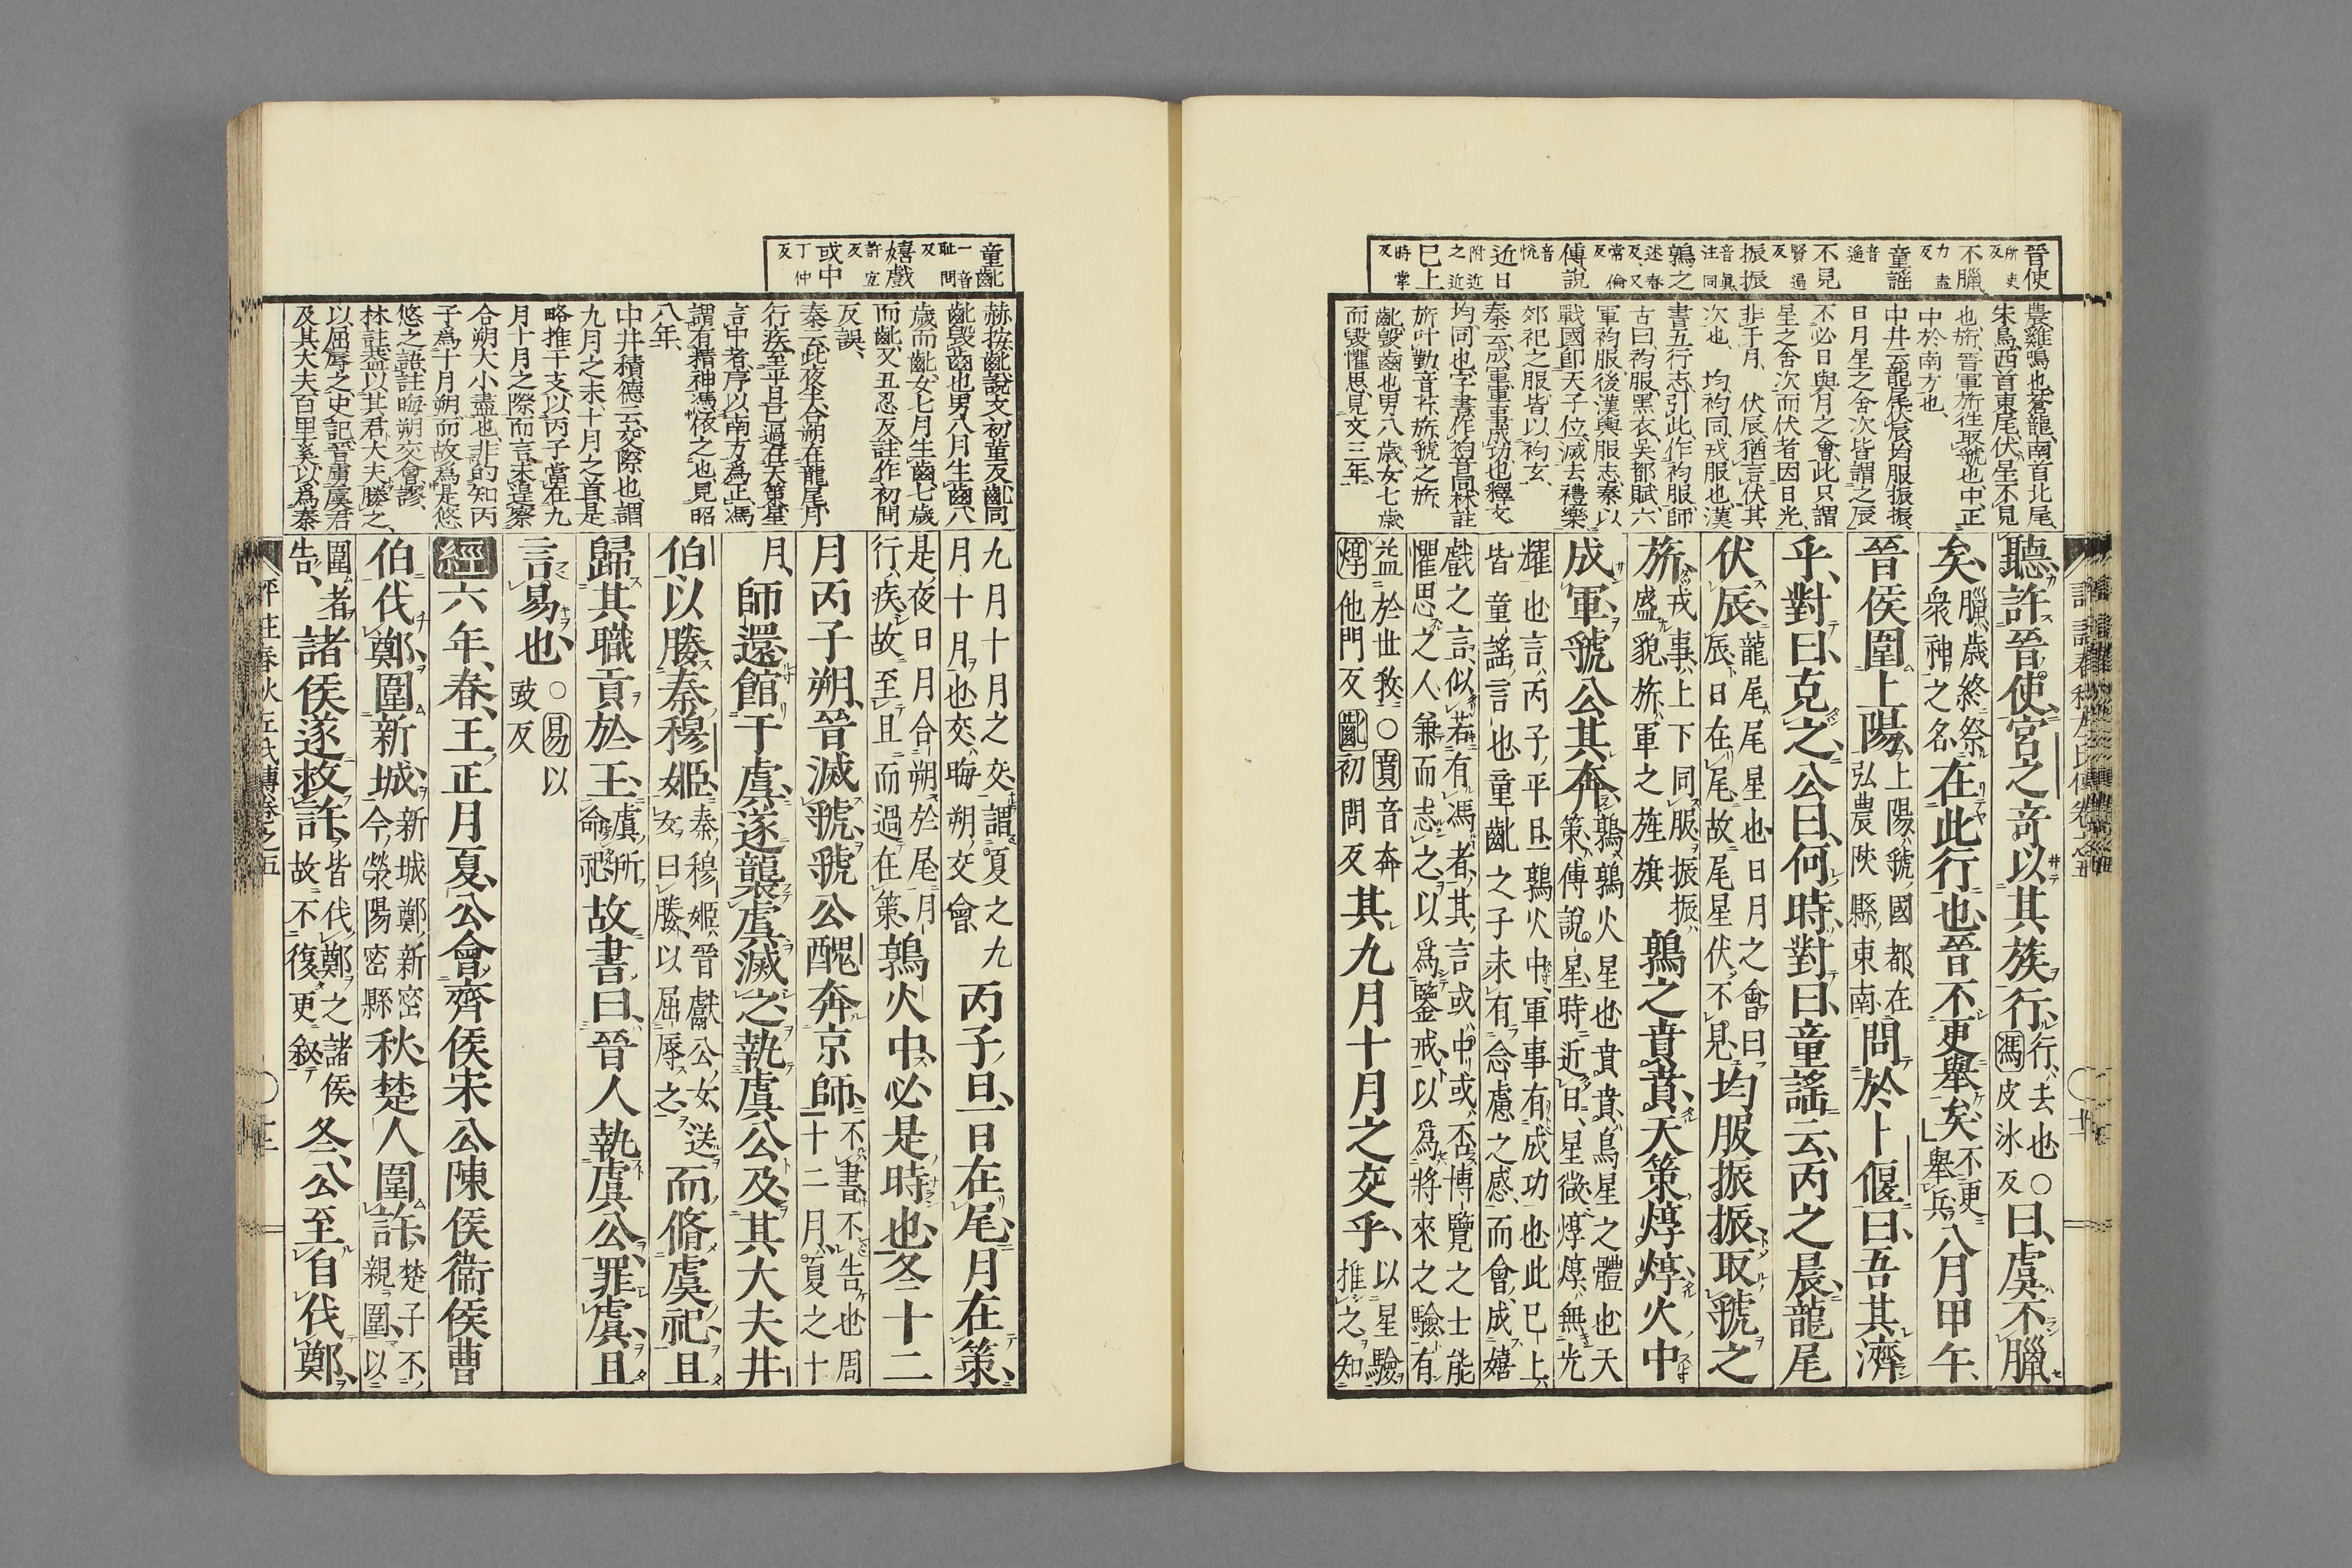 晉使所吏反
不臘力盍反
童謠音遥
不見賢遍反
振振音眞注同
鶉之述春反又常倫反
傳說音悅
近日附近之近
巳上時掌反
農雞鳴也蒼龍南首北尾
朱鳥西首東尾伏星不見
也旂晉軍旂往取虢也中正
中於南方也
中井云龍尾伏辰均服振振
日月星之舍次皆謂之辰
不必日與月之會此只謂
星之舍次而伏者因日光
非于月 伏辰猶言伏其
次也 均袀同戎服也漢
書五行志引此作袀服師
古曰袀服黑衣吳都賦六
軍袀服後漢輿服志秦以
戰國卽天子位滅去禮樂
郊祀之服皆以袀玄
秦云成軍軍事成功也釋文
均同也字書作袀音同林註
旂叶勤音祈旂虢之旂
齔毀齒也男八歲女七歲
而毀懼思見文三年
聽許晉使宮之奇以其族行行去也○馮皮冰反曰虞不臘
矣臘歲終祭衆神之名在此行也晉不更舉矣不更舉兵八月甲午
晉侯圍上陽上陽虢國都在弘農陜縣東南問於卜偃曰吾其濟
乎對曰克之公曰何時對曰童謠云丙之晨龍尾
伏辰龍尾尾星也日月之會曰辰日在尾故尾星伏不見均服振振取虢之
旂戎事上下同服振振盛貌旂軍之旌旗鶉之賁賁天策焞焞火中
成軍虢公其奔鶉鶉火星也賁賁鳥星之體也天策傳說星時近日星微焞焞無光
耀也言丙子平旦鶉火中軍事有成功也此巳上皆童謠言也童齔之子未有念慮之感而會成嬉
戲之言似若有馮者其言或中或否博覽之士能懼思之人兼而志之以爲鑒戒以爲將來之驗有
益於世敎○賁音奔焞他門反齔初問反其九月十月之交乎以星驗推之知
童齔一音恥問反
嬉戲許宜反
或中丁仲反
赫按齔說文初堇反齔同
齔毀齒也男八月生齒八
歲而齔女七月生齒七歲
而齔又丑忍反註作初問
反誤
秦云此夜半合朔在龍尾月
行疾至平旦已過在天策星
言中者序以南方爲正馮
謂有精神馮依之也見昭
八年
中井積德云交際也謂
九月之末十月之首是
略推干支以丙子當在九
月十月之際而言未遑察
合朔大小盡也非的知丙
子爲十月朔而故爲是悠
悠之語註晦朔交會謬
林註蓋以其君大夫滕之
以屈辱之史記晉虜虞君
及其大夫百里奚以爲秦
九月十月之交謂夏之九月十月也交晦朔交會丙子旦日在尾月在策
是夜日月合朔於尾月行疾故至旦而過在策鶉火中必是時也冬十二
月丙子朔晉滅虢虢公醜奔京師不書不告也周十二月夏之十
月師還館于虞遂襲虞滅之執虞公及其大夫井
伯以媵秦穆姬秦穆姬晉獻公女送女曰媵以屈辱之而脩虞祀且
歸其職貢於王虞所命祀故書曰晉人執虞公罪虞且
言易也○易以豉反
經六年春王正月夏公會齊侯宋公陳侯衞侯曹
伯伐鄭圍新城新城鄭新密今滎陽密縣秋楚人圍許楚子不親圍以
圍者告諸侯遂救許皆伐鄭之諸侯故不復更敘冬公至自伐鄭
評註春秋左氏傳卷之五